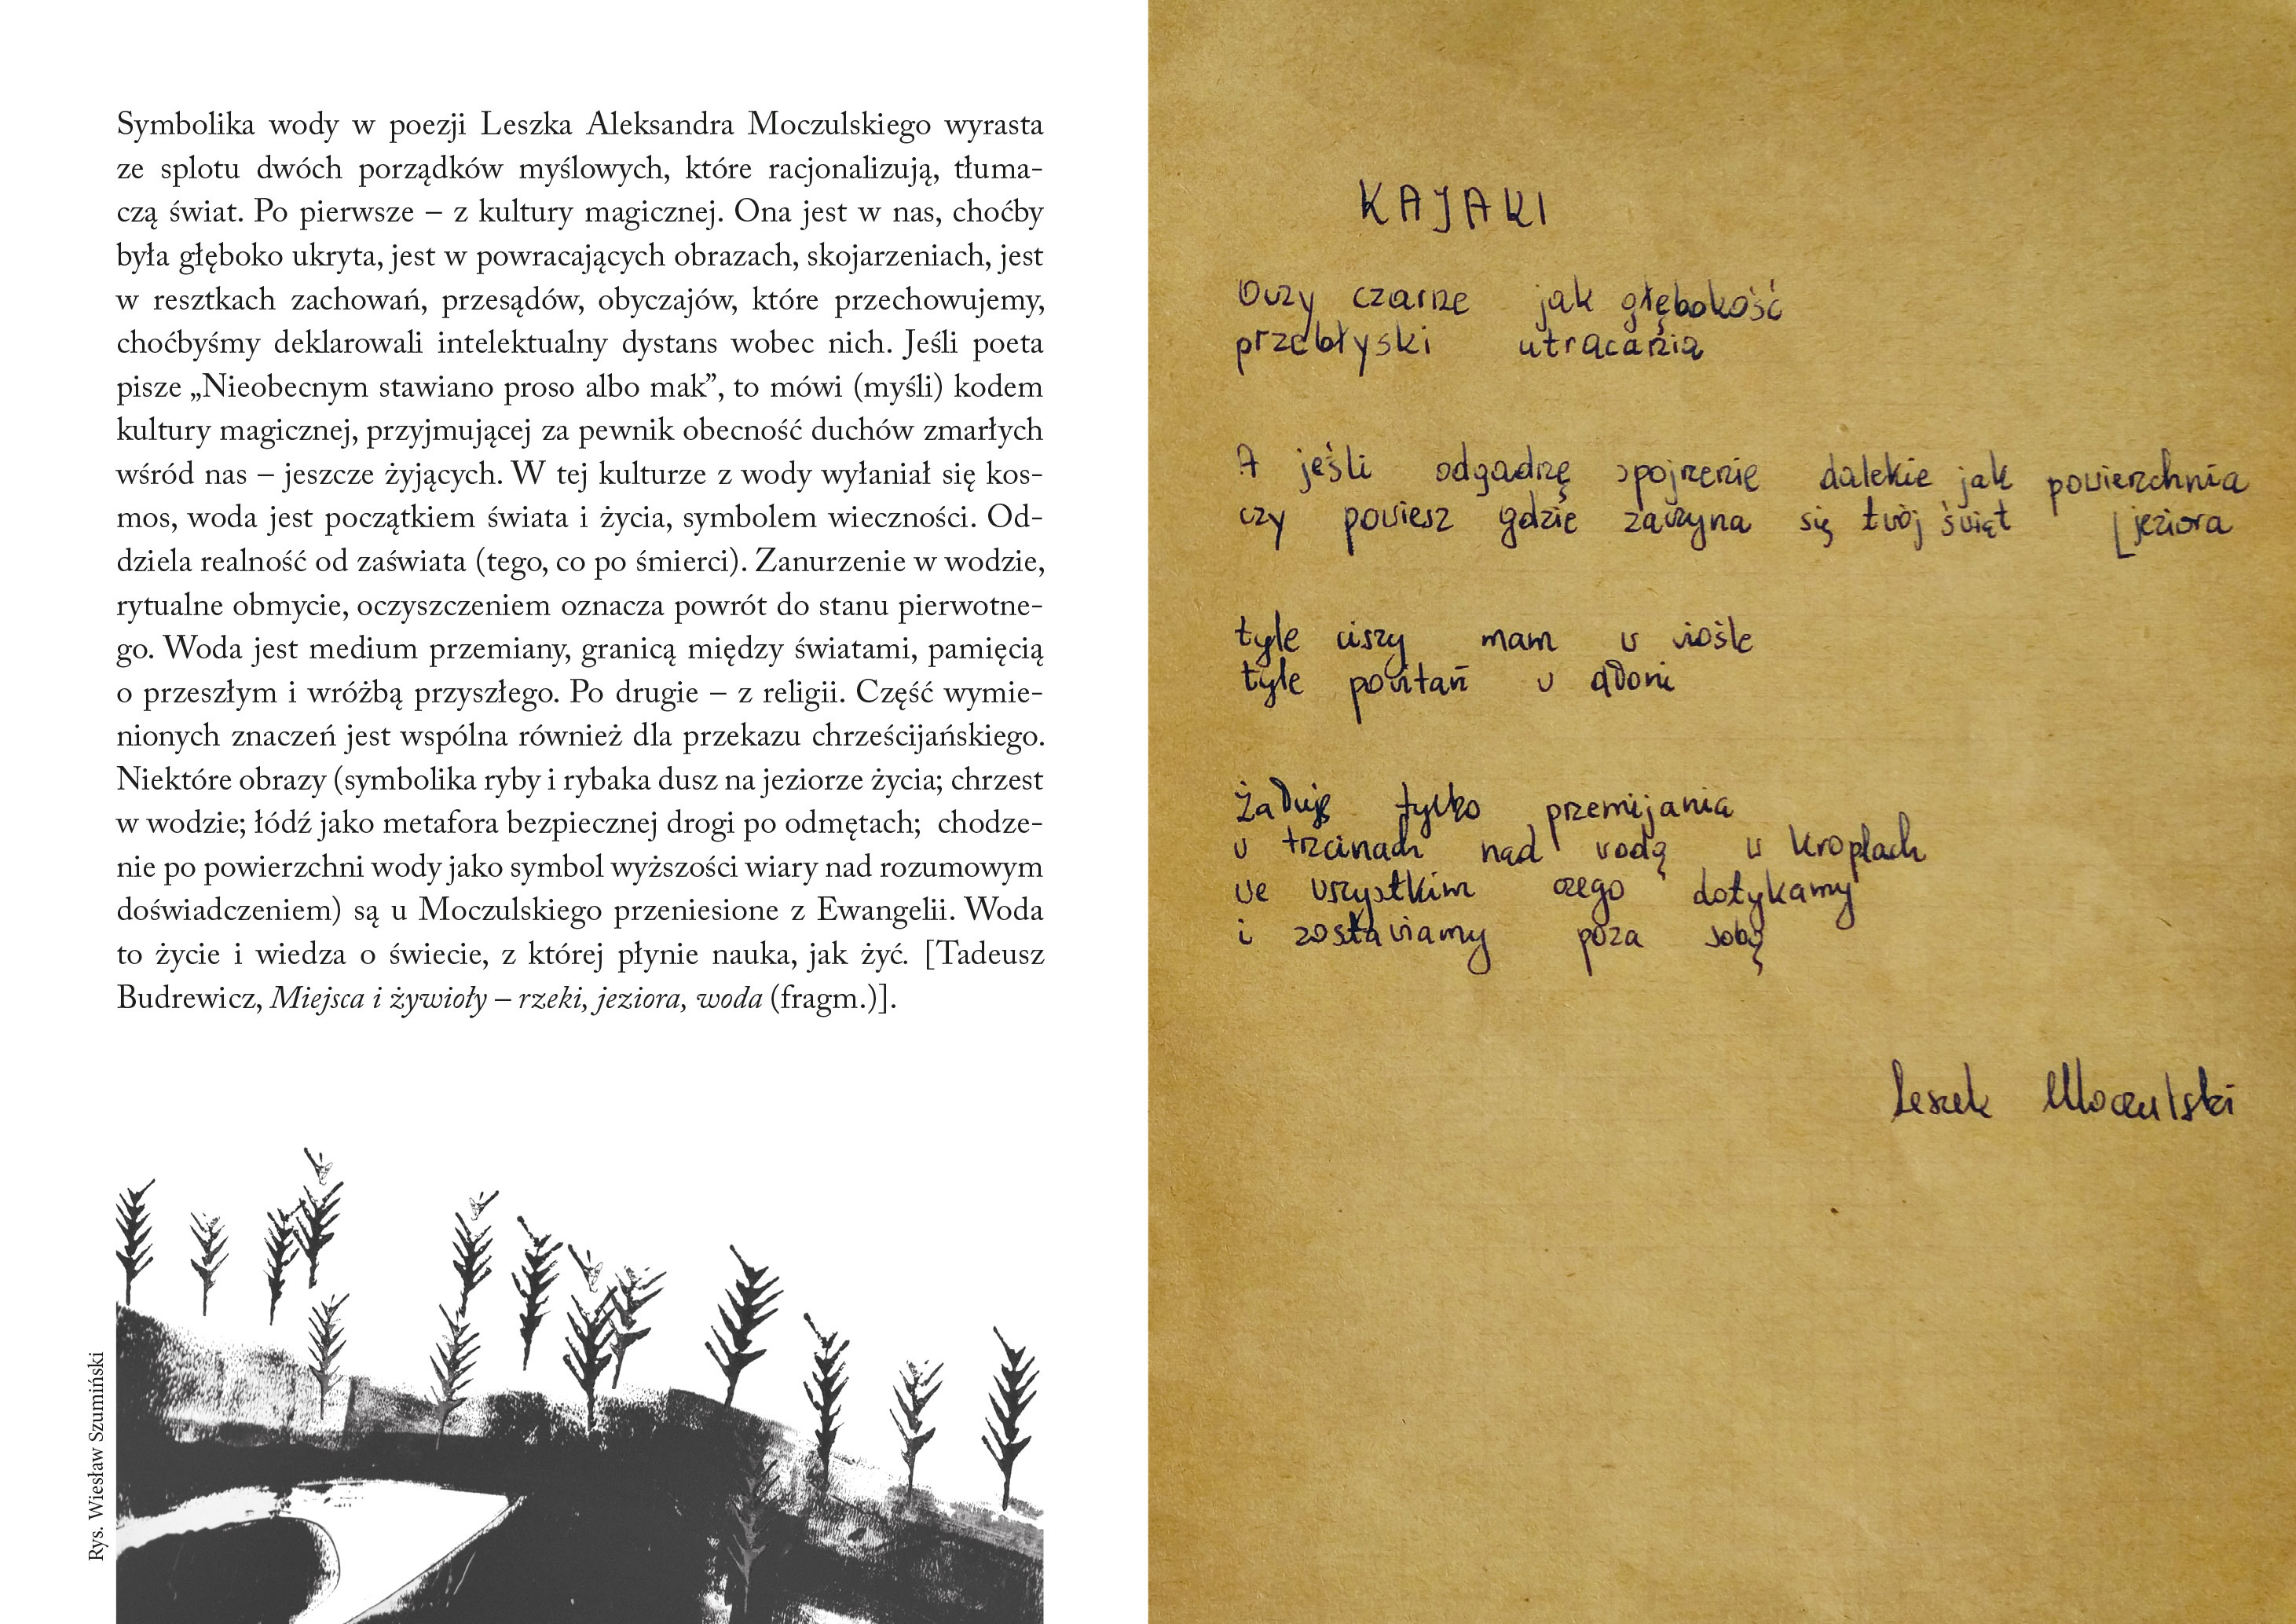 Symbolika wody w poezji Leszka Aleksandra Moczulskiego wyrasta
ze splotu dwóch porządków myślowych, które racjonalizują, tłuma-
czą świat. Po pierwsze – z kultury magicznej. Ona jest w nas, choćby
była głęboko ukryta, jest w powracających obrazach, skojarzeniach, jest
w resztkach zachowań, przesądów, obyczajów, które przechowujemy,
choćbyśmy deklarowali intelektualny dystans wobec nich. Jeśli poeta
pisze „Nieobecnym stawiano proso albo mak”, to mówi (myśli) kodem
kultury magicznej, przyjmującej za pewnik obecność duchów zmarłych
wśród nas – jeszcze żyjących. W tej kulturze z wody wyłaniał się kos-
mos, woda jest początkiem świata i życia, symbolem wieczności. Od-
dziela realność od zaświata (tego, co po śmierci). Zanurzenie w wodzie,
rytualne obmycie, oczyszczeniem oznacza powrót do stanu pierwotne-
go. Woda jest medium przemiany, granicą między światami, pamięcią
o przeszłym i wróżbą przyszłego. Po drugie – z religii. Część wymie-
nionych znaczeń jest wspólna również dla przekazu chrześcijańskiego.
Niektóre obrazy (symbolika ryby i rybaka dusz na jeziorze życia; chrzest
w wodzie; łódź jako metafora bezpiecznej drogi po odmętach; chodze-
nie po powierzchni wody jako symbol wyższości wiary nad rozumowym
doświadczeniem) są u Moczulskiego przeniesione z Ewangelii. Woda
to życie i wiedza o świecie, z której płynie nauka, jak żyć. [Tadeusz
Budrewicz, Miejsca i żywioły – rzeki, jeziora, woda (fragm.)].
Rys. Wiesław Szumiński
KAJAKI
Oczy czarne jak głębokość
przebłyski utracania
A jeśli odgadnę spojrzenie dalekie jak powierzchnia
czy powiesz gdzie zaczyna się twój świat [jeziora
tyle ciszy mam w wiośle
tyle powitań w dłoni
Żałuję tylko przemijania
w trzcinach nad wodą w kroplach
we wszystkim czego dotykamy
i zostawiamy poza sobą
Leszek Moczulski